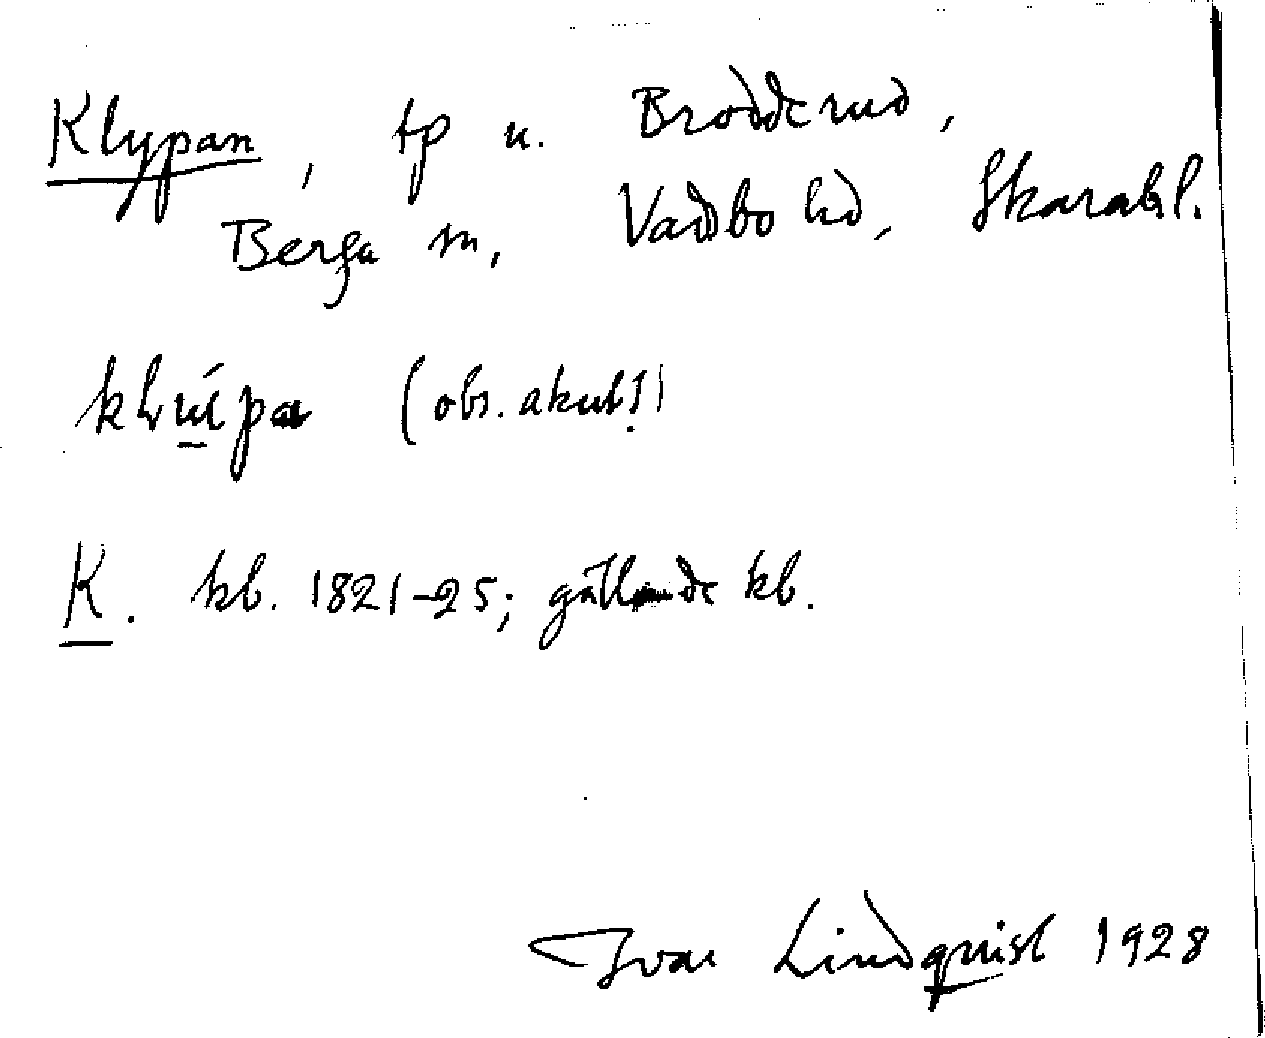 Klypan, tp u. Brodderud,
Berga sn, Vadsbo hd, Skarabl.
(obs. akut!)
K. kb. 1821-25; gällande kb.
Ivar Lindquist 1928